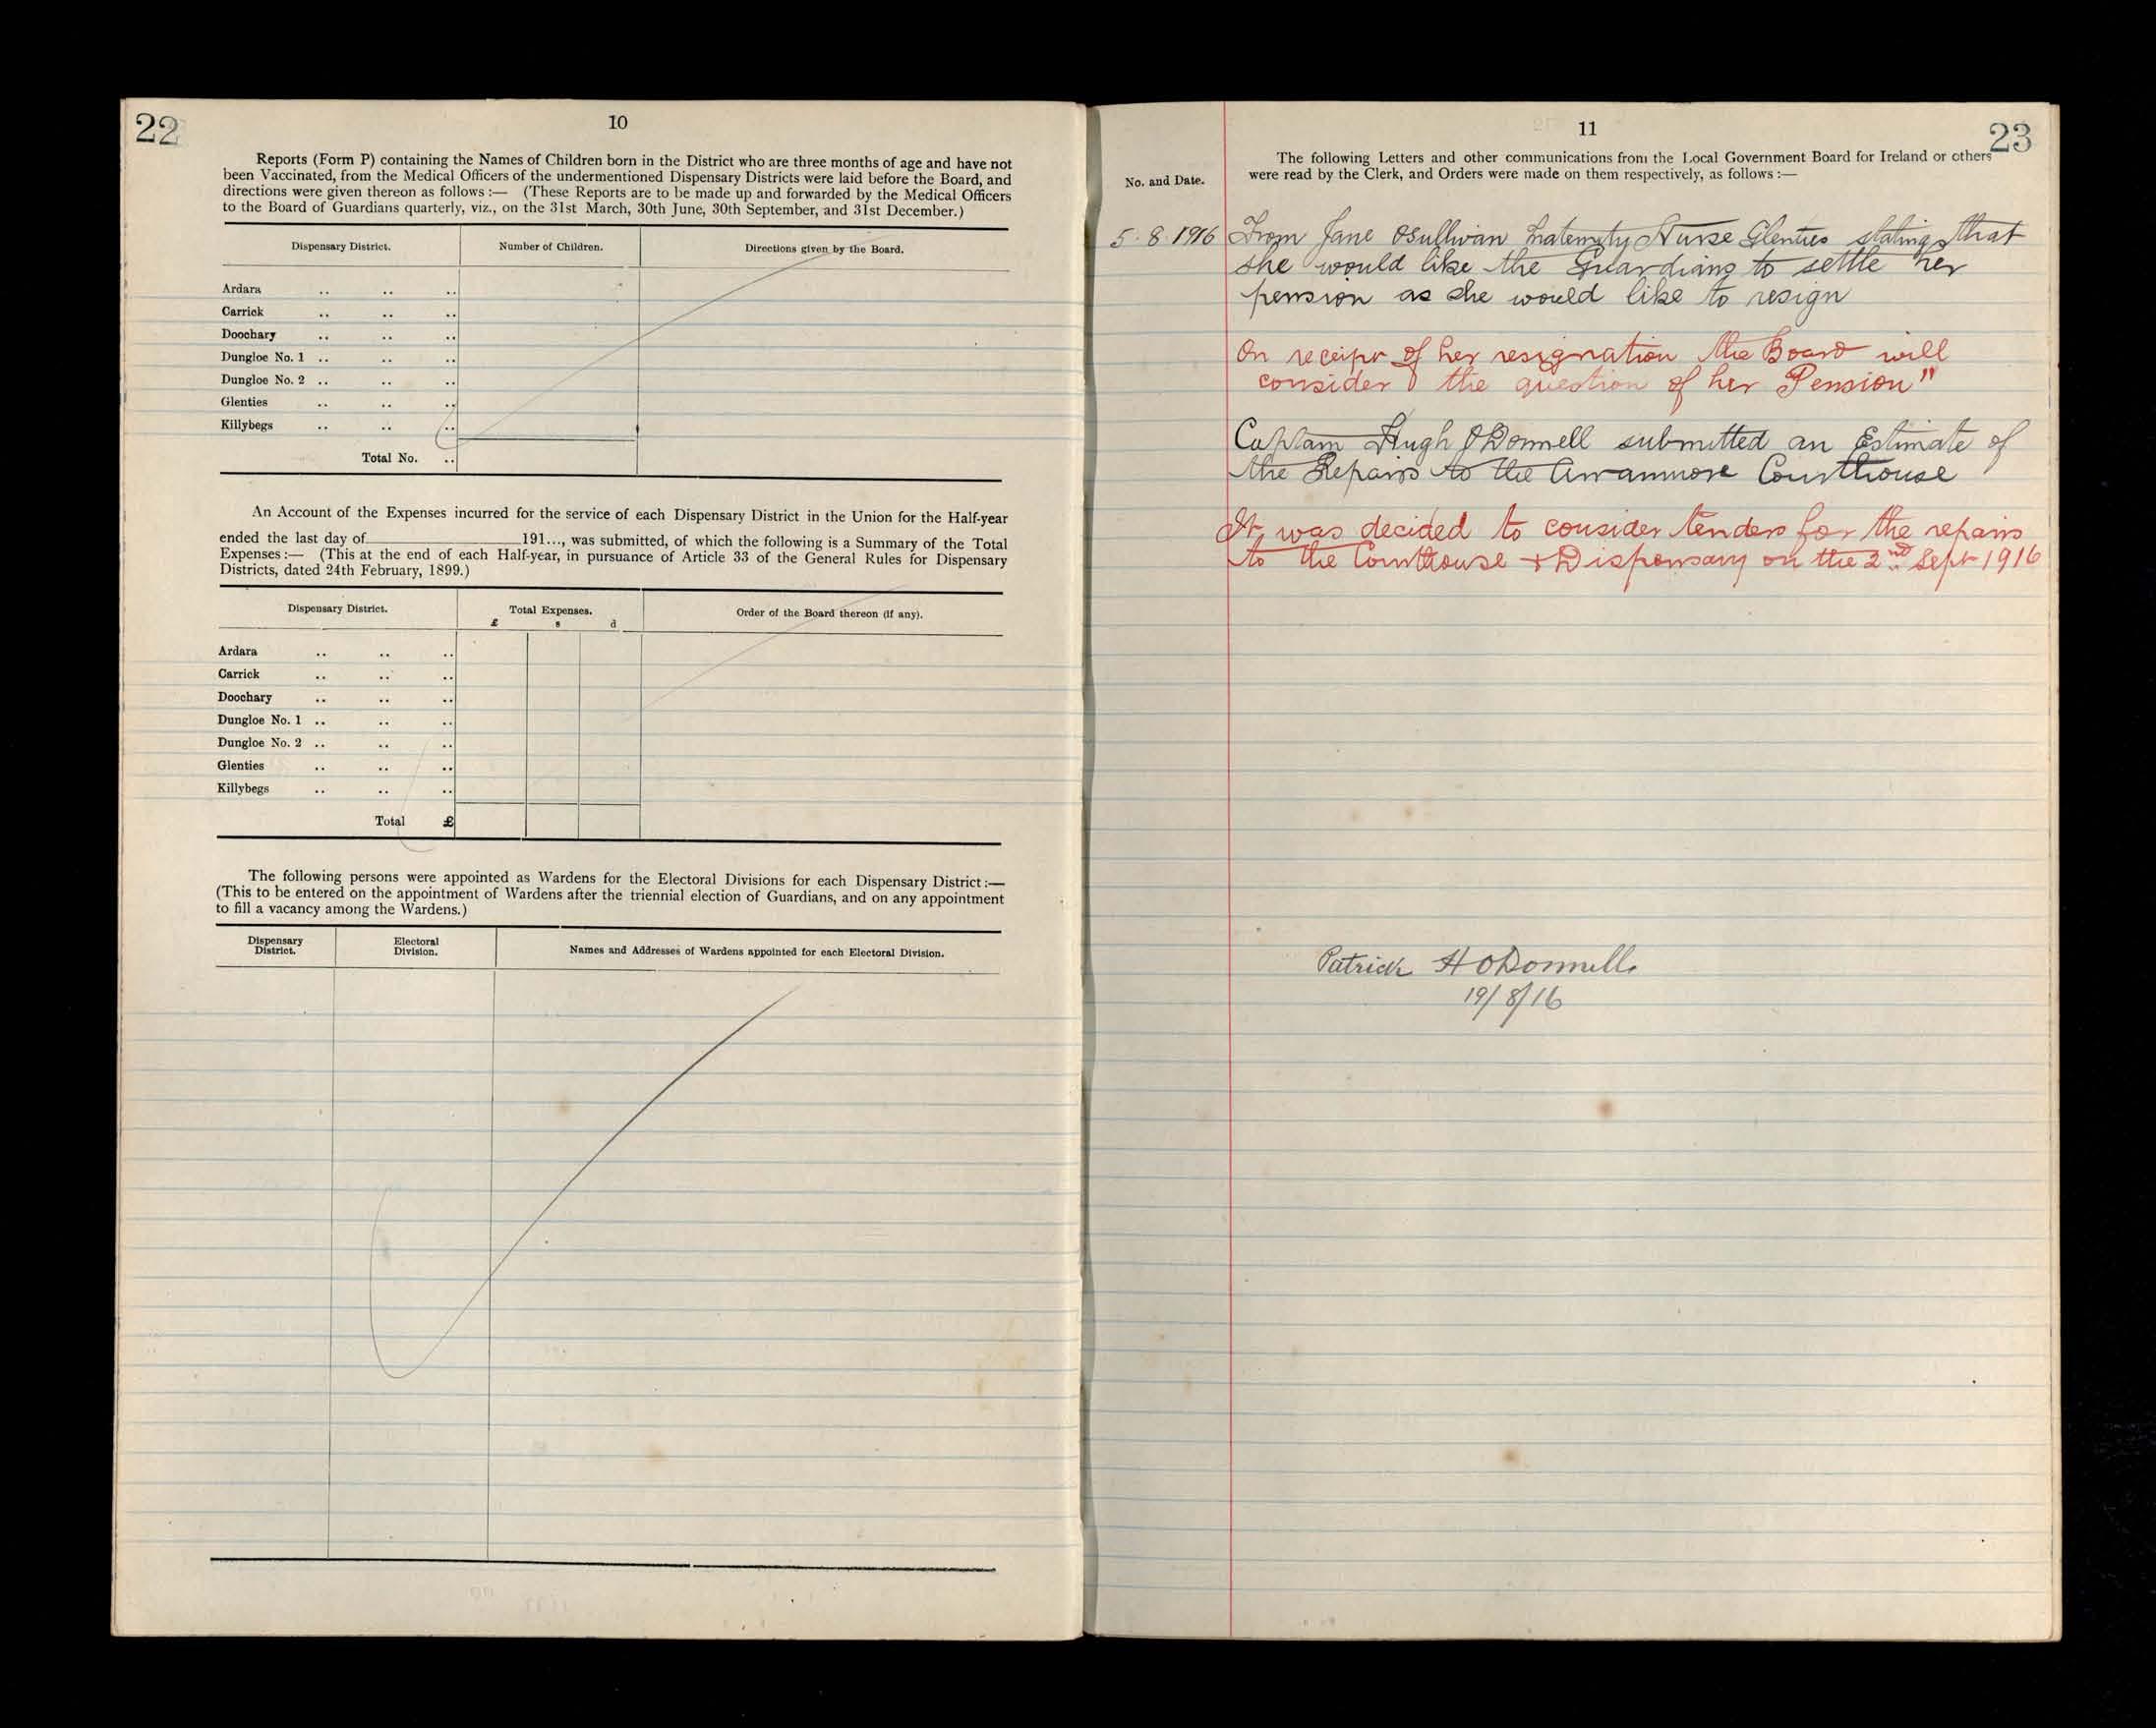 22
10
Reports (Form P) containing the Names of Children born in the District who are three months of age and have not
been Vaccinated, from the Medical Officers of the undermentioned Dispensary Districts were laid before the Board, and
directions were given thereon as follows :— (These Reports are to be made up and forwarded by the Medical Officers
to the Board of Guardians quarterly, viz., on the 31st March, 30th June, 30th September, and 31st December.)
Dispensary District. Number of Children. Directions given by the Board.
Ardara .. .. ..
Carrick .. .. ..
Doochary .. .. ..
Dungloe No. 1 .. .. ..
Dungloe No. 2 .. .. ..
Glenties .. .. ..
Killybegs .. .. ..
Total No. ..
An Account of the Expenses incurred for the service of each Dispensary District in the Union for the Half-year
ended the last day of 191..., was submitted, of which the following is a Summary of the Total
Expenses :— (This at the end of each Half-year, in pursuance of Article 33 of the General Rules for Dispensary
Districts, dated 24th February, 1899.)
Dispensary District. Total Expenses. Order of the Board thereon (if any).
£ s d
Ardara .. .. ..
Carrick .. .. ..
Doochary .. .. ..
Dungloe No. 1 .. .. ..
Dungloe No. 2 .. .. ..
Glenties .. .. ..
Killybegs .. .. ..
Total £
The following persons were appointed as Wardens for the Electoral Divisions for each Dispensary District :—
(This to be entered on the appointment of Wardens after the triennial election of Guardians, and on any appointment
to fill a vacancy among the Wardens.)
Dispensary District. Electoral Division. Names and Addresses of Wardens appointed for each Electoral Division.
11
23
The following Letters and other communications from the Local Government Board for Ireland or others
were read by the Clerk, and Orders were made on them respectively, as follows :—
No. and Date.
5.8.1916 From Jane OSullivan Maternity Nurse Glenties stating that
she would like the Guardians to settle her
pension as she would like to resign
On receipt of her resignation the Board will
consider the question of her Pension"
Captain Hugh O'Donnell submitted an Estimate of
the Repairs to the Arranmore Courthouse
It was decided to consider tenders for the repairs
to the Courthouse + Dispensary on the 2nd Sept 1916
Patrick H ODonnell
19/8/16